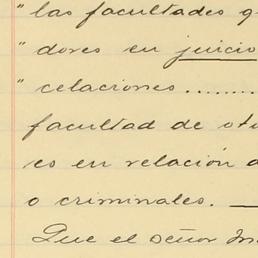 " las facultades q
" dores en juicio
" celaciones........
facultad de oto
es en relación a
o criminales. —
Que el señor In